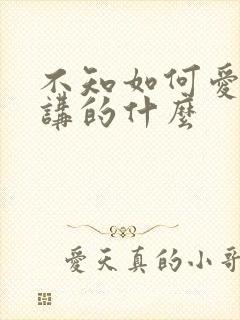 不知如何愛
講的什麼
愛天真的小哥